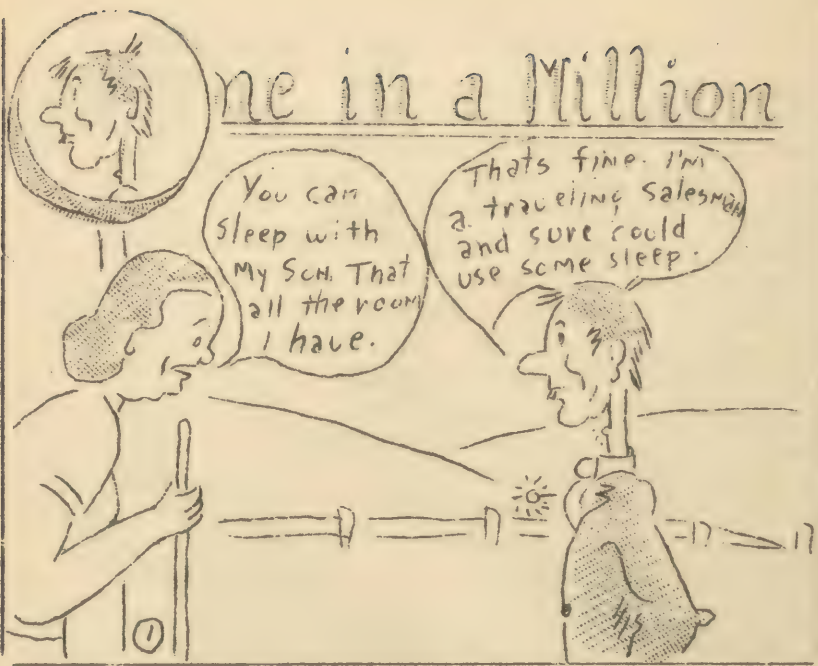 One in a Million
You can
sleep with
My Son. That
all the room
I have.
Thats fine. I'm
a traveling salesman
and sure could
use some sleep.
1